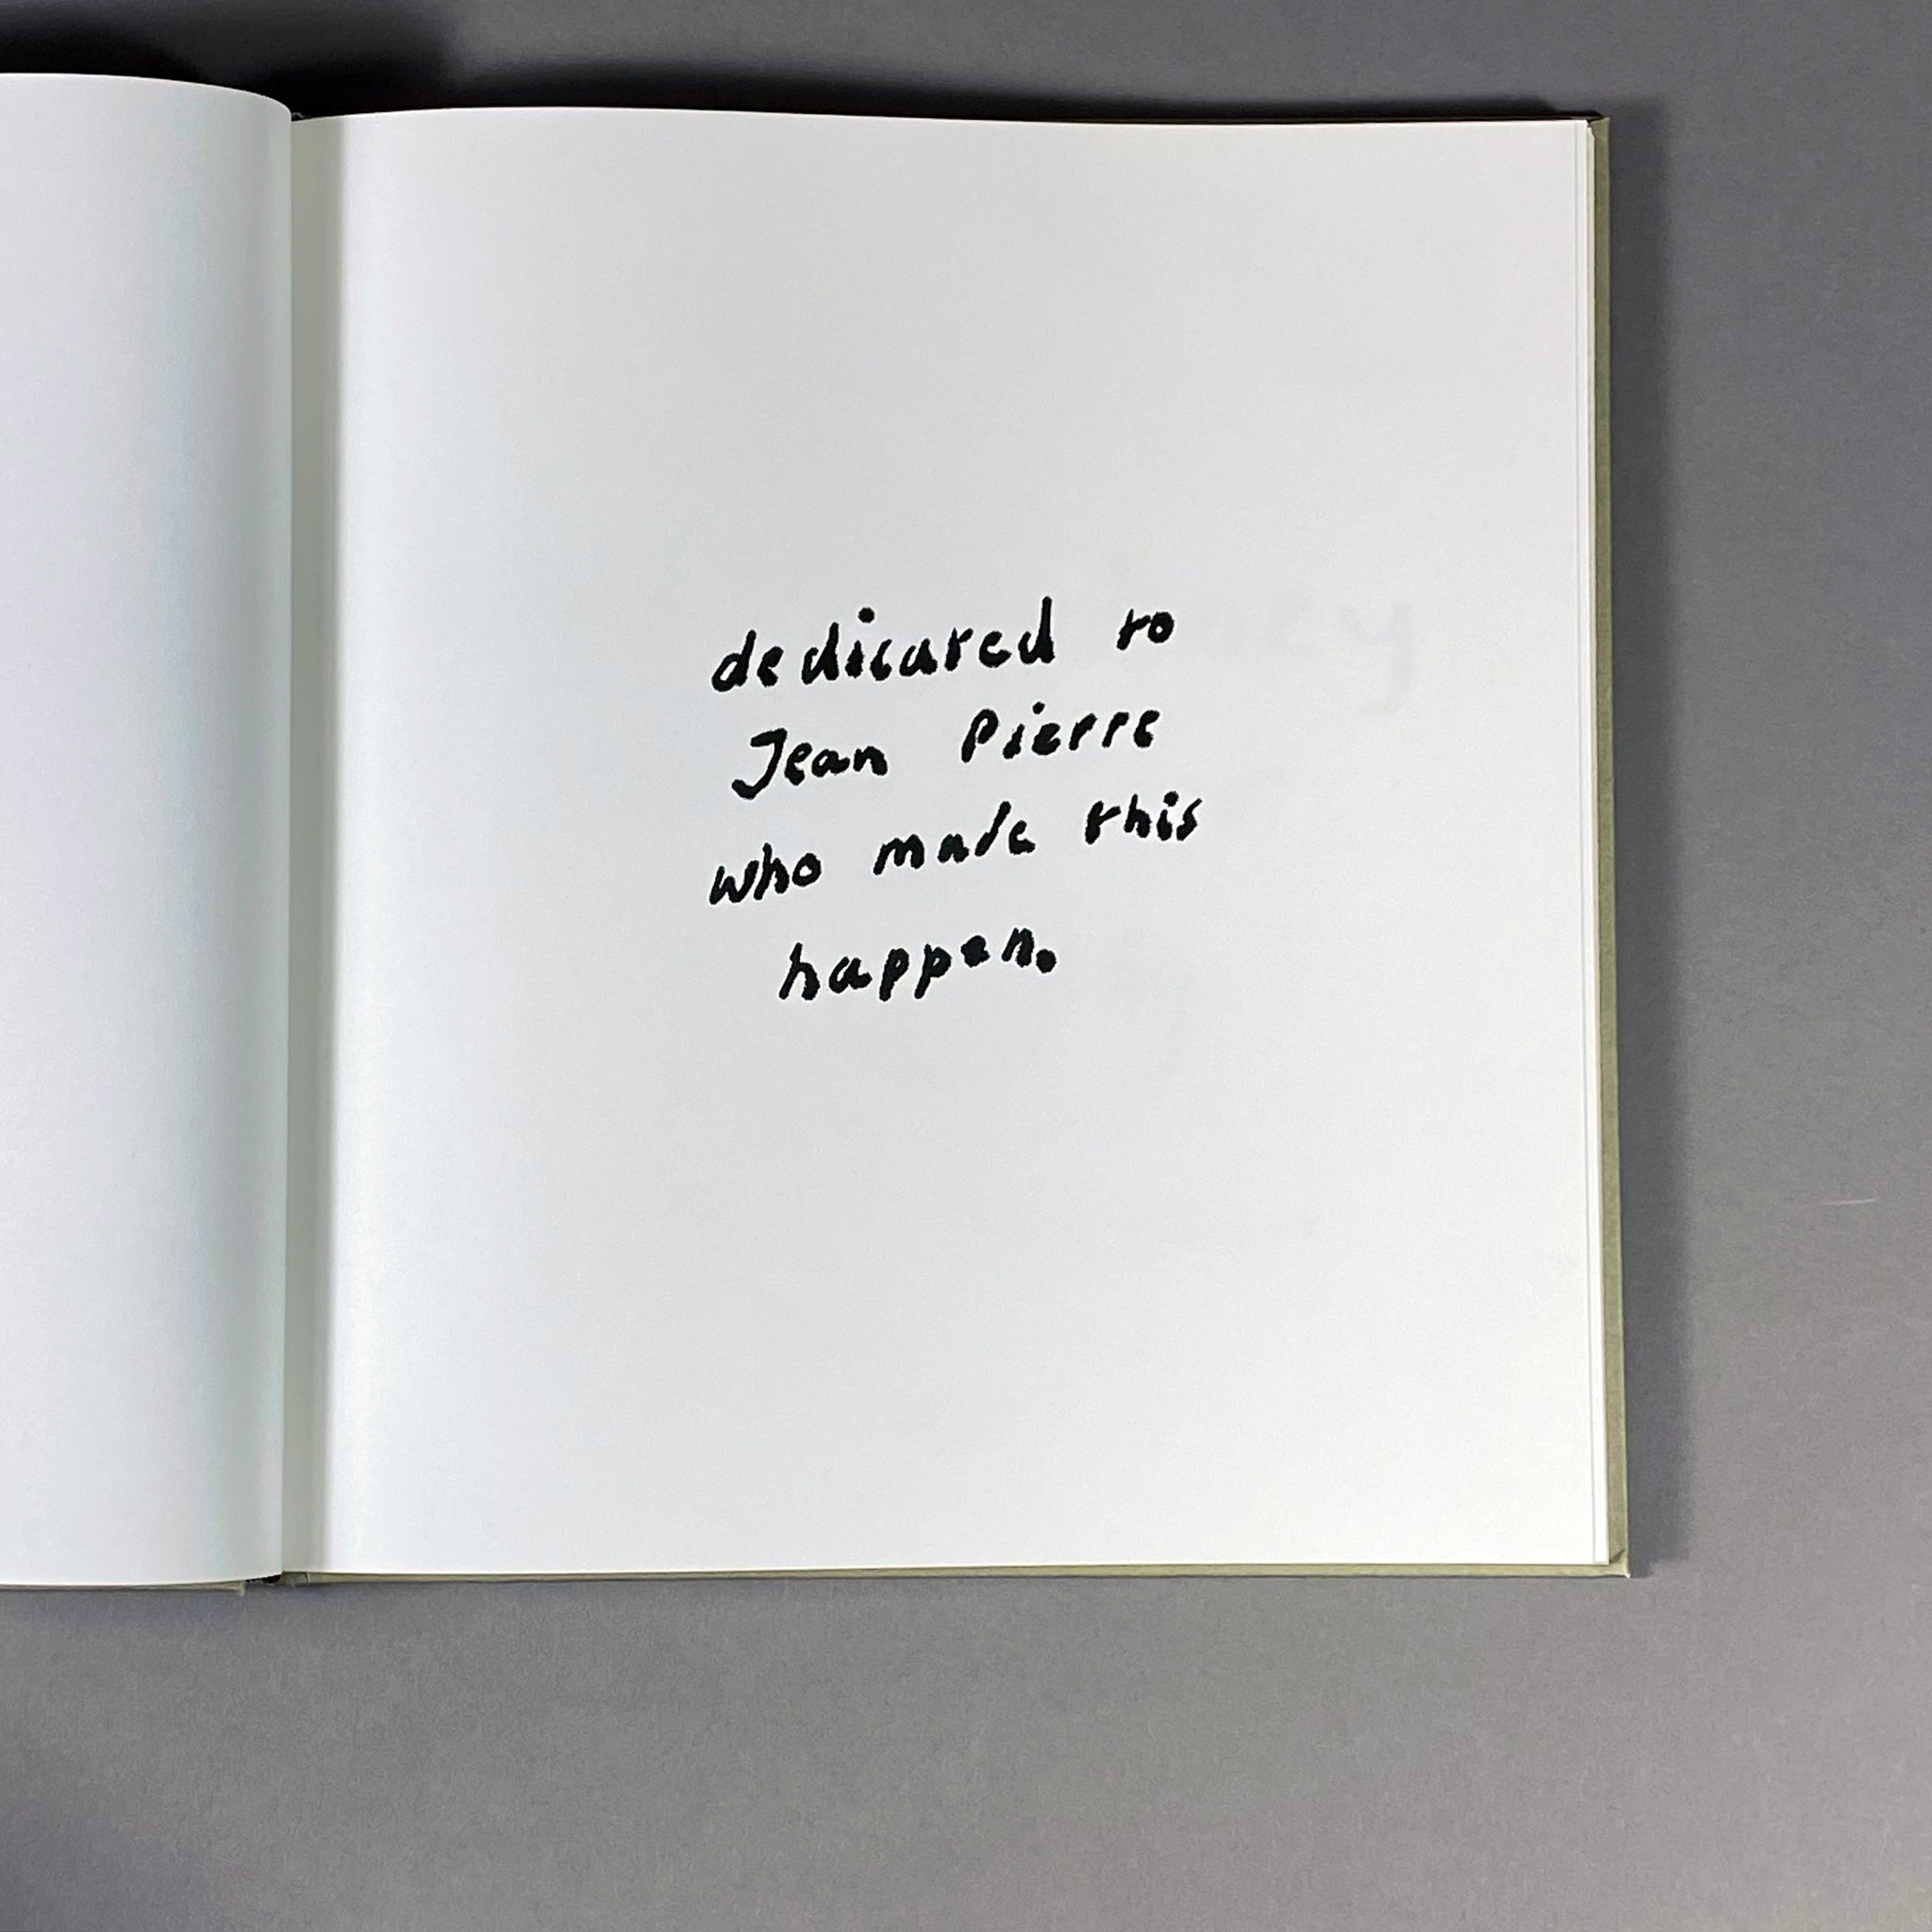 dedicated to
Jean Pierre
who made this
happen.